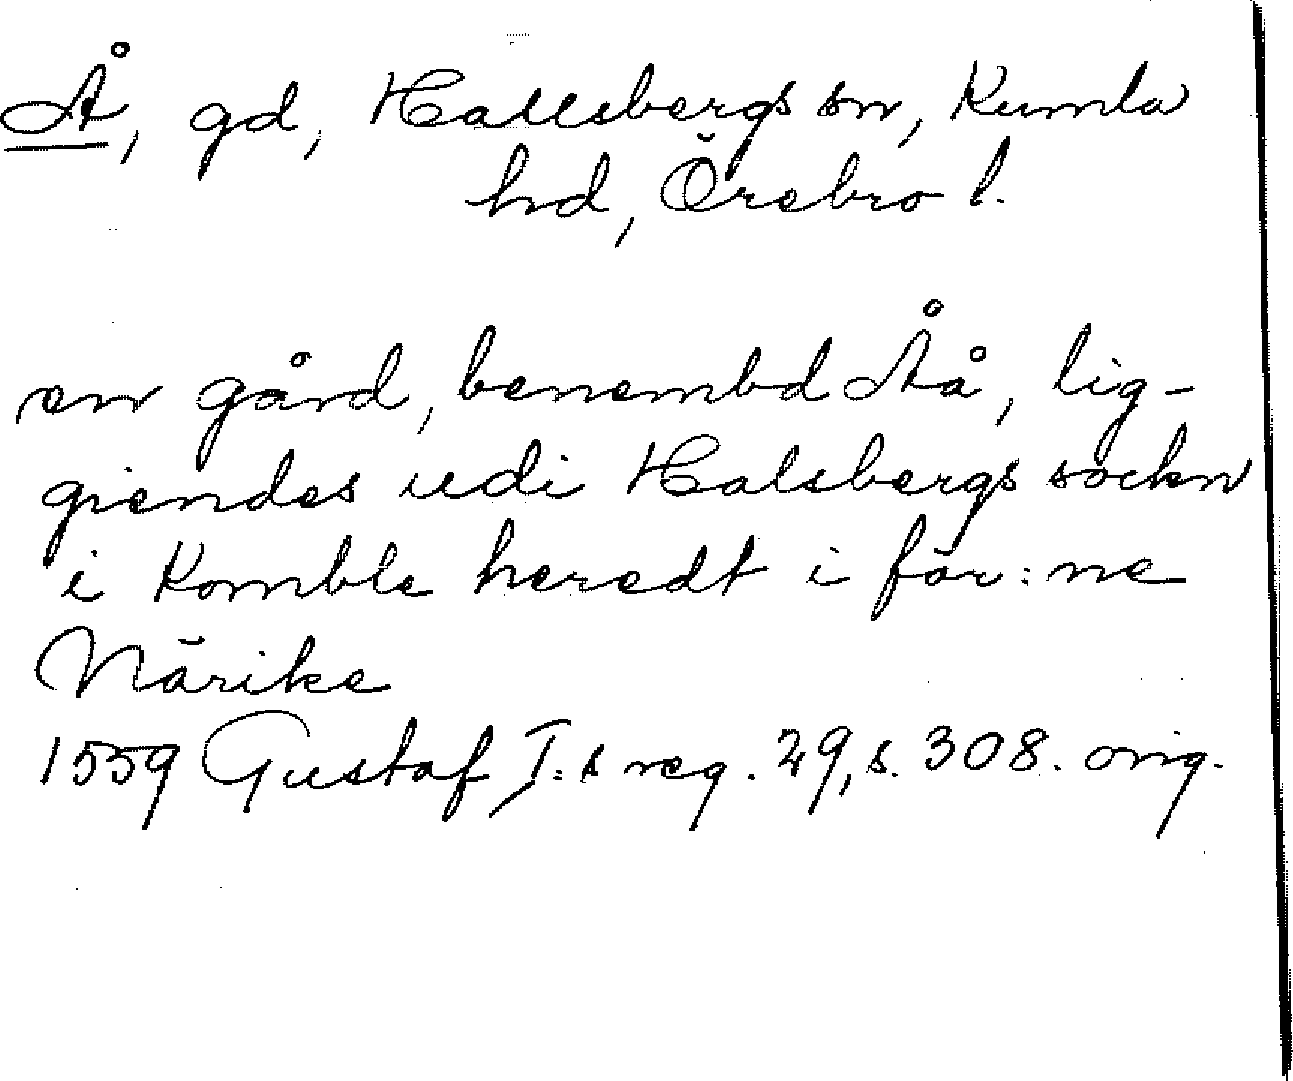 Å, gd, Hallsbergs sn, Kumla
hd, Örebro l.
en gård, benembd Åå, lig-
giendes udi Halsbergs sockn
i Komble heredt i för:ne
Närike
1559 Gustaf I:s reg. 29, s. 308. orig.